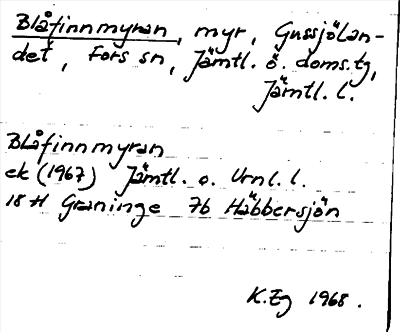 Blåfinnmyran, myr, Gussjölan-
det, Fors sn, Jämtl. ö. doms.tg,
Jämtl. l.
Blåfinnmyran
ek (1967) Jämtl. o. Vrnl. l.
18 H Graninge 7b Häbbersjön
K.Eg 1968.